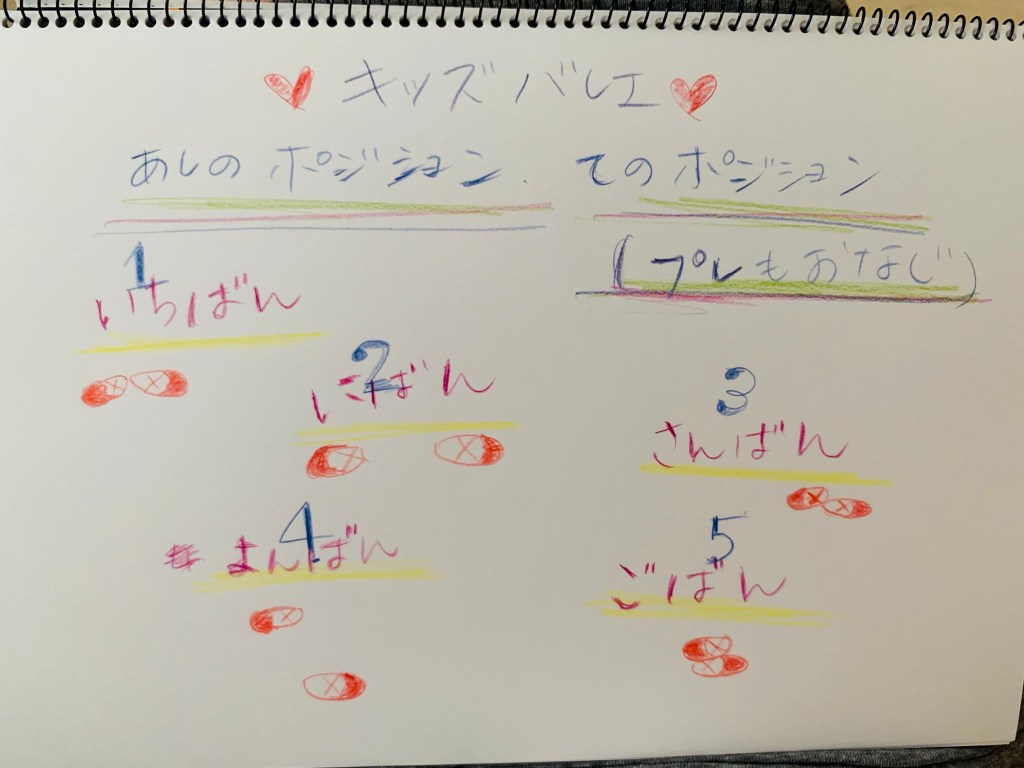 キッズバレエ
あしのポジション. てのポジション
(プレもおなじ)
1
いちばん
2
にばん
3
さんばん
4
よんばん
5
ごばん